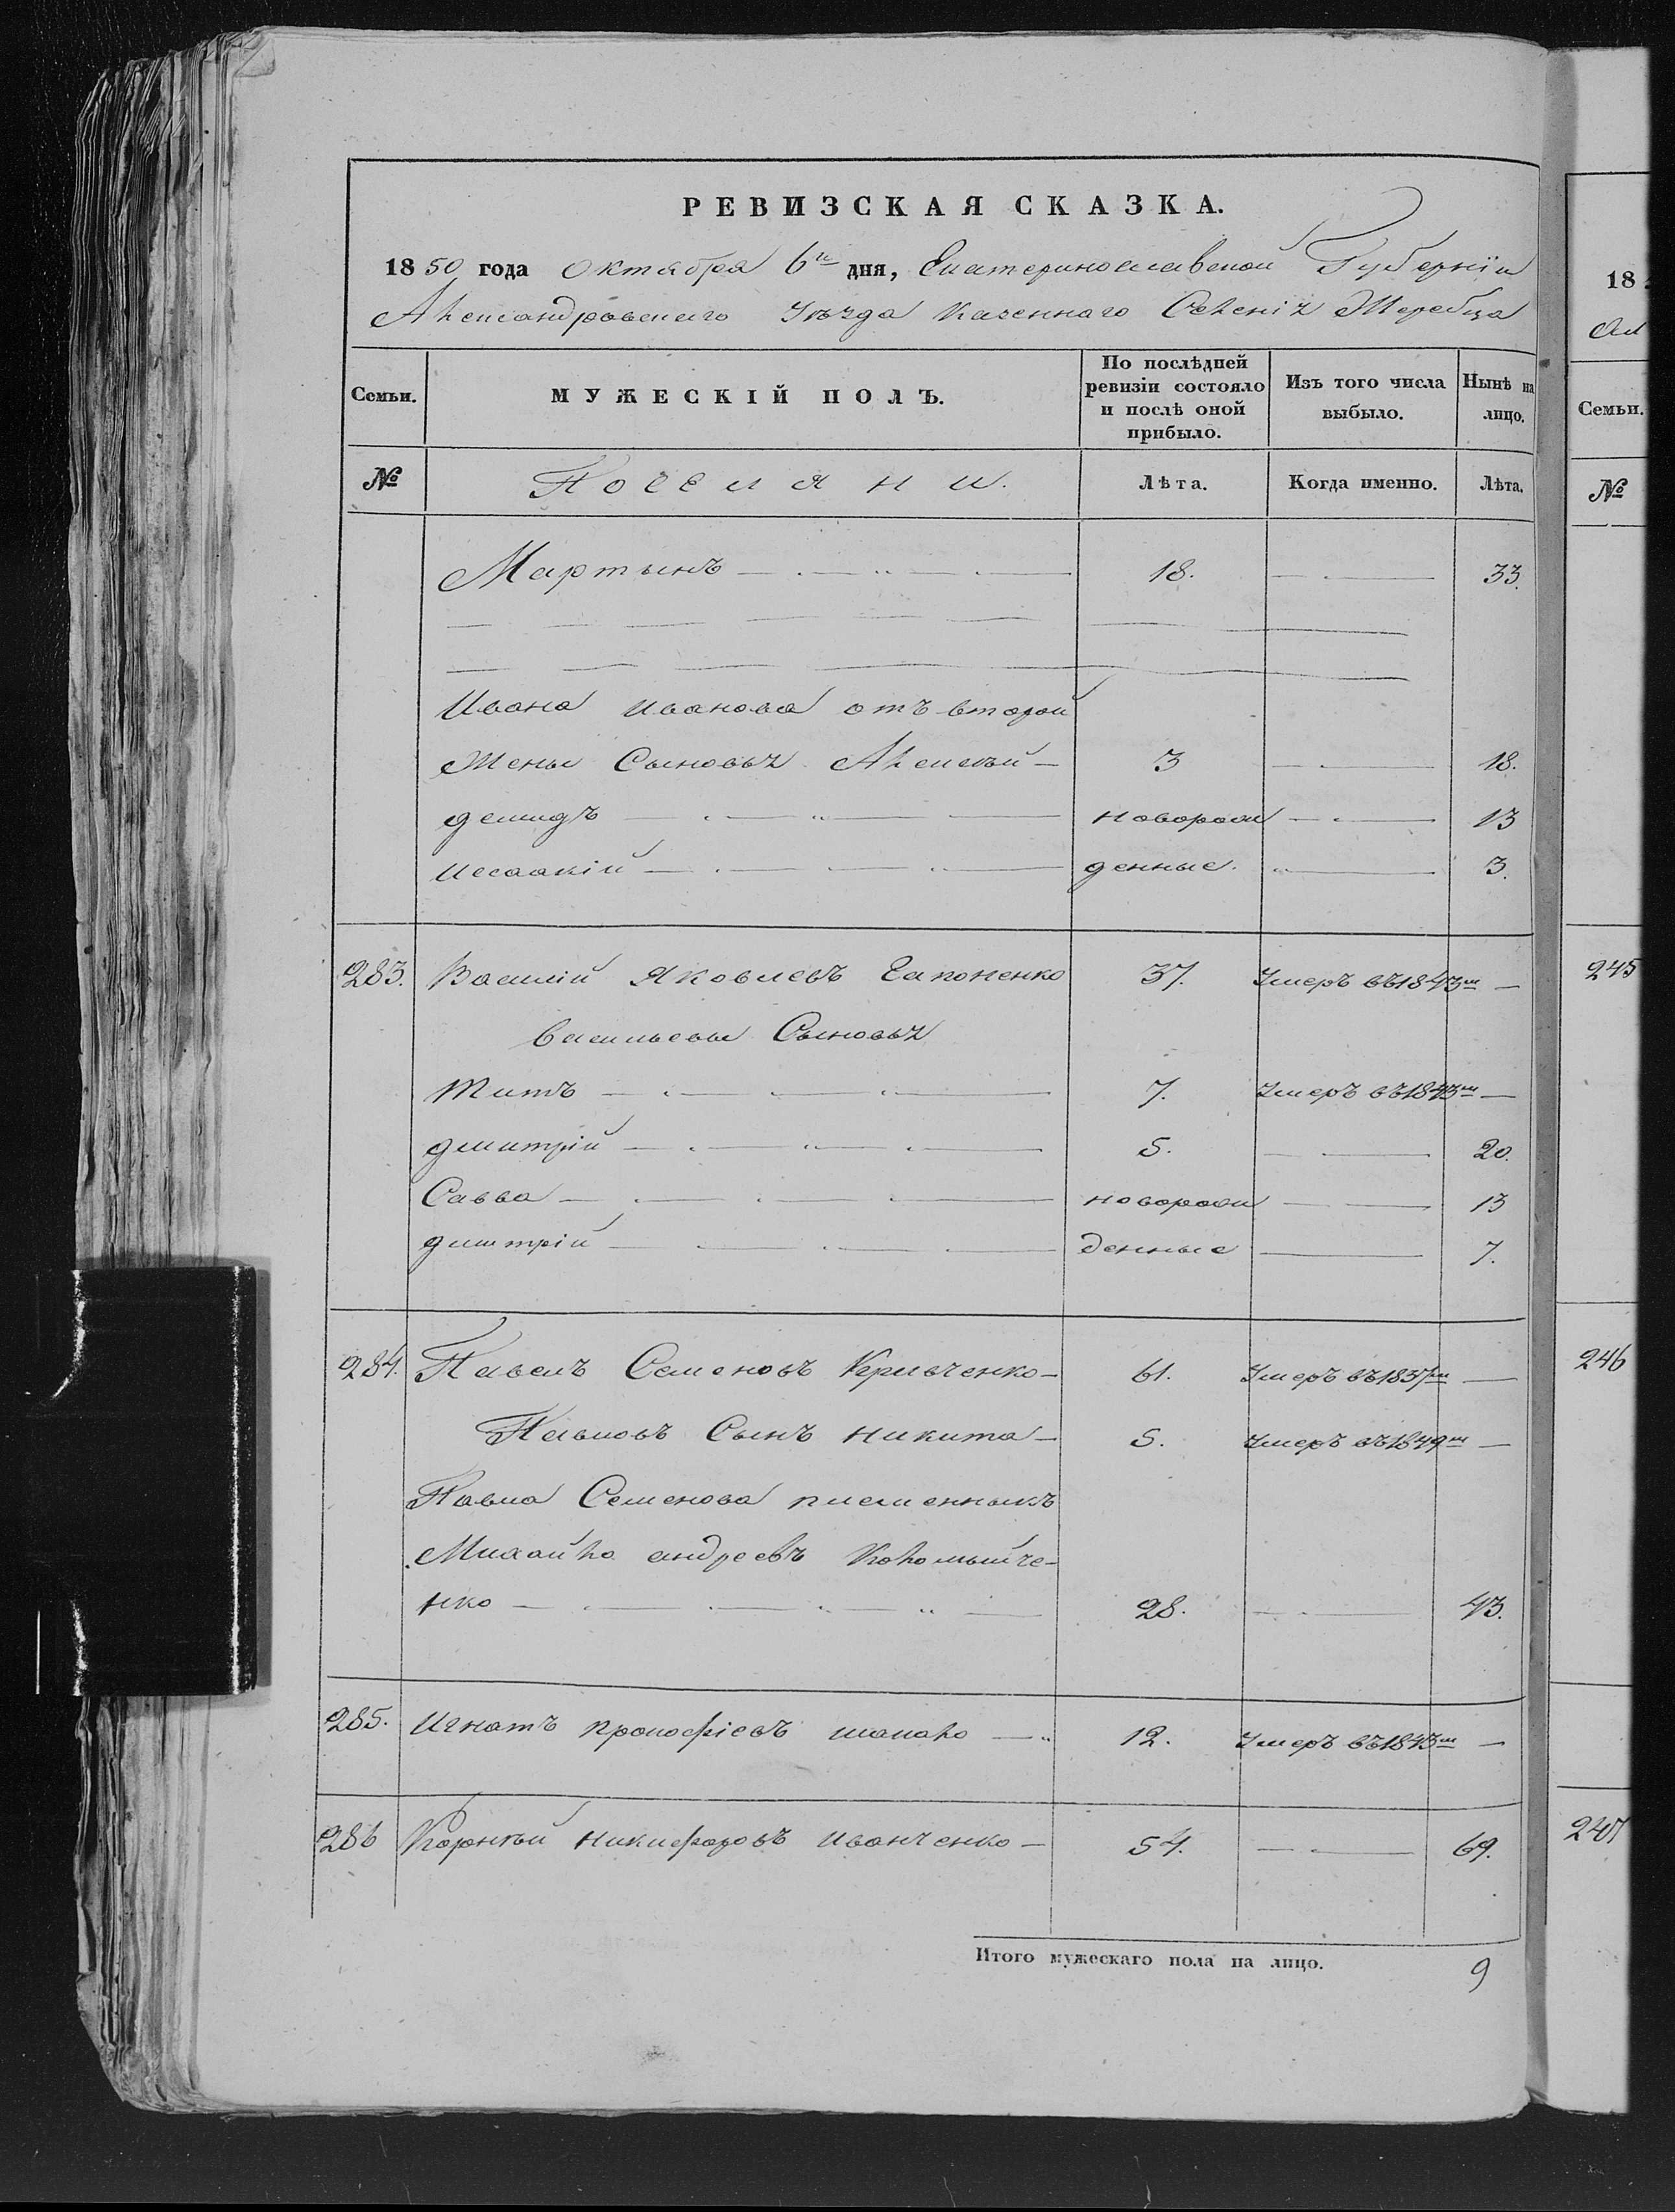 РЕВИЗСКАЯ СКАЗКА.
1850 года Октября 6го дня, Екатеринославской Губерніи
Александровскаго Уѣзда Казеннаго Селенія Жеребца
Семьи. МУЖЕСКІЙ ПОЛЪ. По послѣдней ревизіи состояло и послѣ оной прибыло. Изъ того числа выбыло. Нынѣ на лицо.
№ Поселяни. Лѣта. Когда именно. Лѣта.
Мартынъ 18. 33.
Ивана Иванова отъ второй
Жены Сыновья Алексѣй 3 18.
демидъ новорож 13
Исаакій денные. 3.
283. Василій Яковлевъ Гапоненко 37. Умеръ въ 1843м
Васильевы Сыновья
Титъ 7. Умеръ въ 1843м
дмитрій 5. 20.
Савва новорож 13
дмитрій денные 7.
284. Павелъ Семеновъ Кривченко 61. Умеръ въ 1837м
Павловъ Сынъ никита 5. Умеръ въ 1849м
Павла Семенова племенникъ
Михайло андреевъ Коломыйче-
нко 28. 43.
285. Игнатъ прокофіевъ шапало 12. Умеръ въ 1843м
286 Корнѣй никифоровъ Иванченко 54. 69.
Итого мужескаго пола на лицо. 9
18
Ал
Семьи.
№
245
246
247